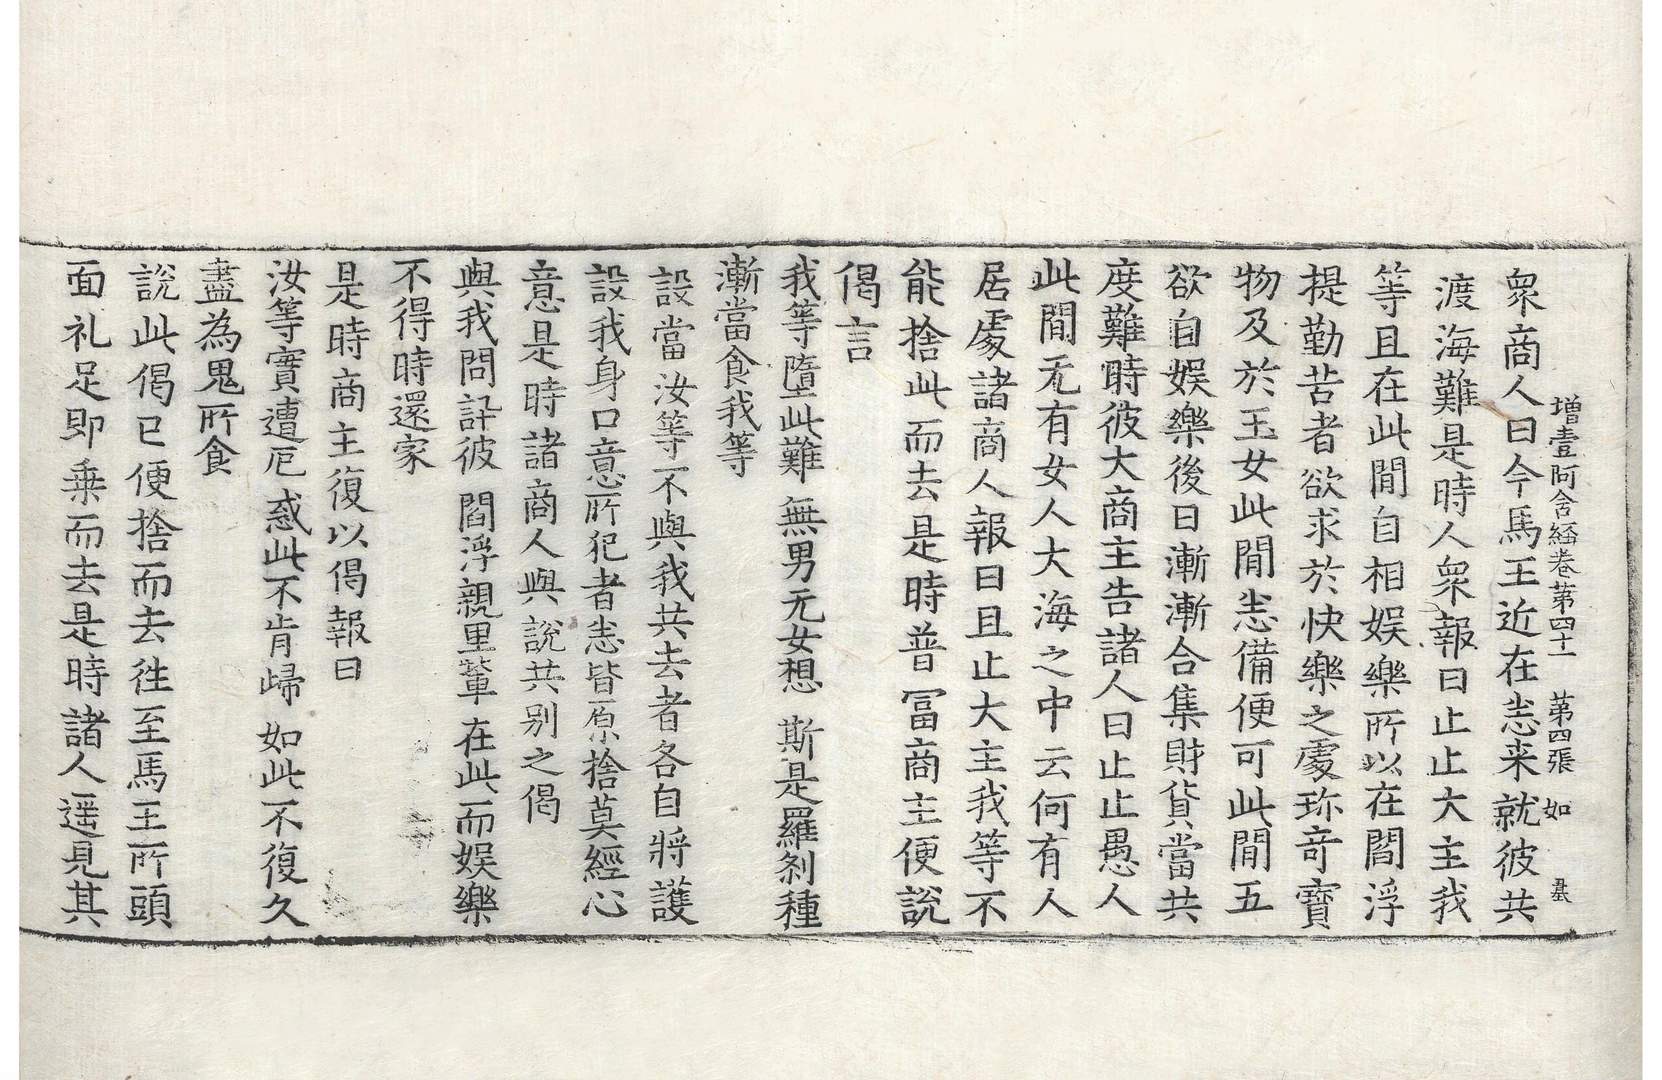 增壹阿含経卷第四十一　第四張　如
衆商人曰今馬王近在悉来就彼共
渡海難是時人衆報曰止止大主我
等且在此閒自相娛樂所以在閻浮
提勤苦者欲求於快樂之處珎竒寶
物及於玉女此閒悉備便可此閒五
欲自娛樂後日漸漸合集財貨當共
度難時彼大商主告諸人曰止止愚人
此閒无有女人大海之中云何有人
居處諸商人報曰且止大主我等不
能捨此而去是時普冨商主便説
偈言
我等墮此難　無男无女想　斯是羅刹種
漸當食我等
設當汝等不與我共去者各自將護
設我身口意所犯者悉皆原捨莫經心
意是時諸商人與說共别之偈
與我問訊彼　閻浮親里軰　在此而娛樂
不得時還家
是時商主復以偈報曰
汝等實遭厄　惑此不肯歸　如此不復久
盡為鬼所食
說此偈已便捨而去往至馬王所頭
面礼足即乗而去是時諸人遥見其